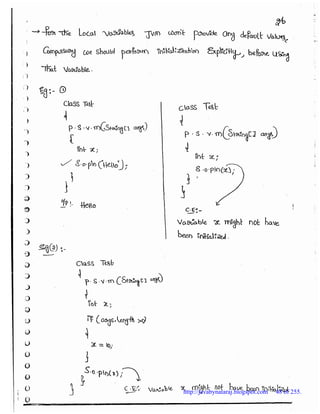 26
→ for the Local variables JVM won't provide any default values,
Compulsory we should perform initialization Explicitly, before using
that variable.
Eg:- ①
class Test
{
p.s.v.m(String[] args)
{
int x;
✓ S.o.pln("Hello");
}
}
o/p:- Hello
class Test
{
p.s.v.m(String[] args)
{
int x;
S.o.pln(x);
}
}
C.E:-
Variable x might not have
been initialized.
Eg(2):-
class Test
{
p.s.v.m (String[] args)
{
int x;
if (args.length >0)
{
x = 10;
}
S.o.pln(x);
}
}
C.E:- Variable x might not have been initialized
http://javabynataraj.blogspot.com 255.